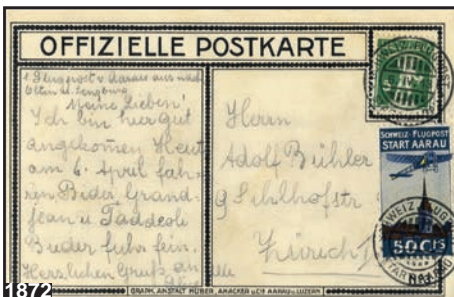 OFFIZIELLE POSTKARTE
1 Flugpost v. Aarau aus nach
Olten u. Lenzburg
Meine Lieben!
Ich bin hier gut
angekommen Heut
am 6. April fah-
ren Bider Grand-
jean u Taddeoli
Bieder fuhr fein.
Herzlichen Gruß an
alle
Herrn
Adolf Bühler
9 Sihlhofstr
Zürich I
SCHWEIZ-FLUGPOST
START AARAU
50 Cts
GRAPH. ANSTALT HUBER, ANACKER & CIE AARAU & LUZERN
1872